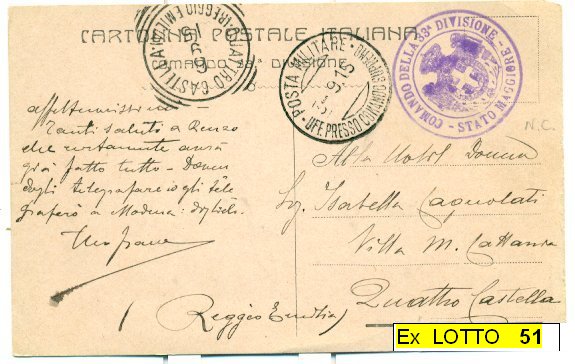 CARTOLINA POSTALE ITALIANA
COMANDO 33ª DIVISIONE
QUATTRO-CASTELLA
(REGGIO EMILIA)
6 9 15
POSTA MILITARE
9.15
UFF. PRESSO COMANDO SUPREMO
COMANDO DELLA 33ª DIVISIONE
STATO MAGGIORE
N.C.
Tanti saluti a Renzo
che certamente avrà
già fatto tutto -
telegrafare io gli tele
graferò a Modena:
Alla Nobil Donna
Sig. Isabella Cagnolati
Villa M. Cattania
Quattro Castella
(Reggio Emilia)
Ex LOTTO 51